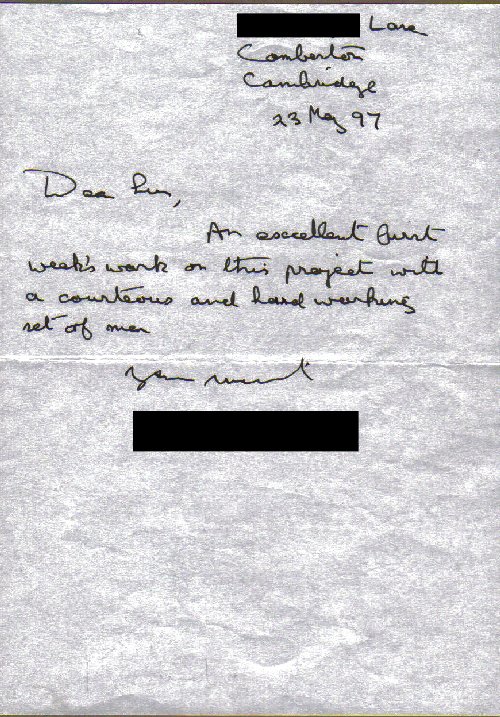 Lane
Comberton
Cambridge
23 May 97
Dear
An excellent first
week's work on this project with
a courteous and hard working
set of men